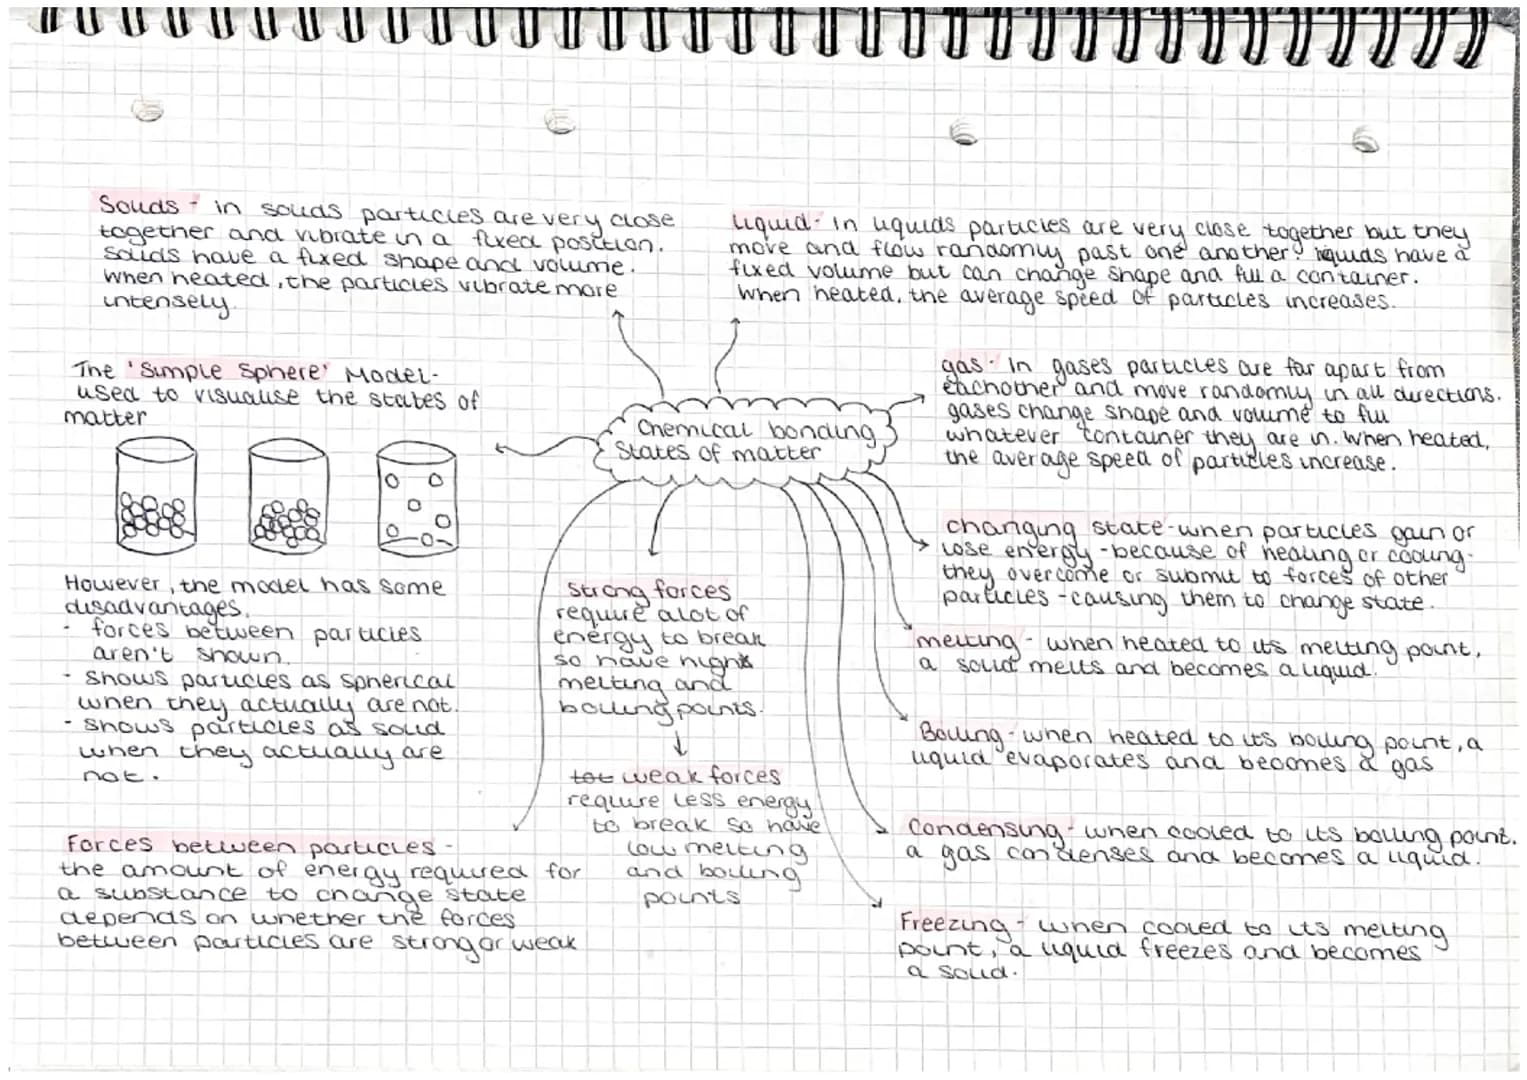 Solids - in solids particles are very close
together and vibrate in a fixed position.
solids have a fixed shape and volume.
when heated, the particles vibrate more
intensely.
liquid - In liquids particles are very close together but they
move and flow randomly past one another. liquids have a
fixed volume but can change shape and fill a container.
When heated, the average speed of particles increases.
The 'Simple Sphere' Model-
used to visualise the states of
matter
gas - In gases particles are far apart from
eachother and move randomly in all directions.
gases change shape and volume to fill
whatever container they are in. When heated,
the average speed of particles increase.
Chemical bonding
States of matter
changing state - when particles gain or
lose energy - because of heating or cooling -
they overcome or submit to forces of other
particles - causing them to change state.
However, the model has some
disadvantages.
- forces between particles
aren't shown.
- shows particles as spherical
when they actually are not.
- shows particles as solid
when they actually are
not.
strong forces
require alot of
energy to break
so have high
melting and
boiling points.
weak forces
require less energy
to break so have
low melting
and boiling
points
melting - when heated to its melting point,
a solid melts and becomes a liquid.
Boiling - when heated to its boiling point, a
liquid evaporates and becomes a gas
Condensing - when cooled to its boiling point.
a gas condenses and becomes a liquid.
Freezing - when cooled to its melting
point, a liquid freezes and becomes
a solid.
Forces between particles -
the amount of energy required for
a substance to change state
depends on whether the forces
between particles are strong or weak